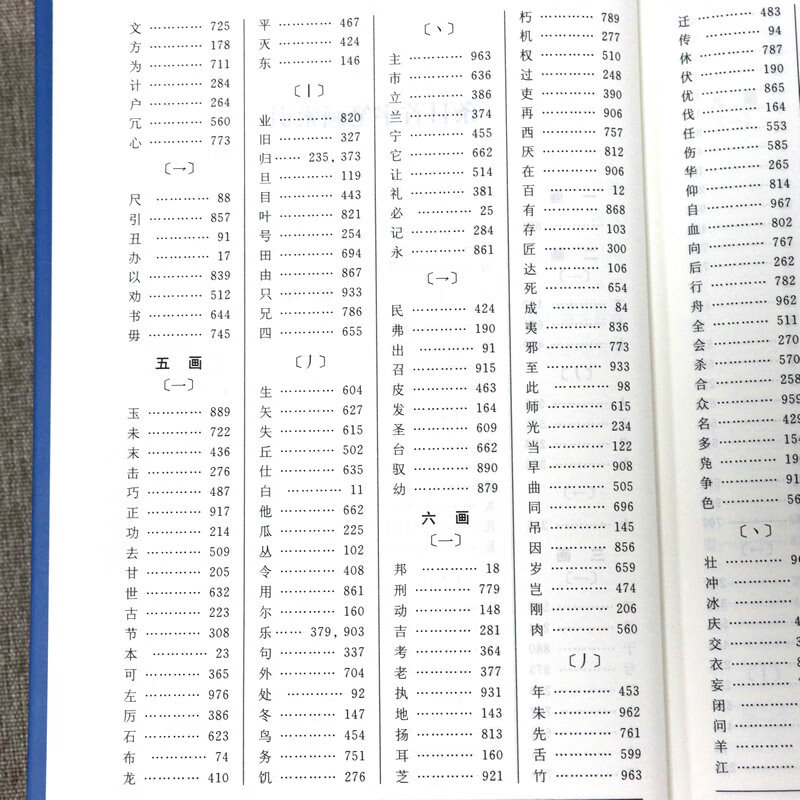 文 ………… 725
方 ………… 178
为 ………… 711
计 ………… 284
户 ………… 264
冗 ………… 560
心 ………… 773
〔一〕
尺 ………… 88
引 ………… 857
丑 ………… 91
办 ………… 17
以 ………… 839
劝 ………… 512
书 ………… 644
毋 ………… 745
五 画
〔一〕
玉 ………… 889
未 ………… 722
末 ………… 436
击 ………… 276
巧 ………… 487
正 ………… 917
功 ………… 214
去 ………… 509
甘 ………… 205
世 ………… 632
古 ………… 223
节 ………… 308
本 ………… 23
可 ………… 365
左 ………… 976
厉 ………… 386
石 ………… 623
布 ………… 74
龙 ………… 410
平 ………… 467
灭 ………… 424
东 ………… 146
〔丨〕
业 ………… 820
旧 ………… 327
归 …… 235,373
旦 ………… 119
目 ………… 443
叶 ………… 821
号 ………… 254
田 ………… 694
由 ………… 867
只 ………… 933
兄 ………… 786
四 ………… 655
〔丿〕
生 ………… 604
矢 ………… 627
失 ………… 615
丘 ………… 502
仕 ………… 635
白 ………… 11
他 ………… 662
瓜 ………… 225
丛 ………… 102
令 ………… 408
用 ………… 861
尔 ………… 160
乐 …… 379,903
句 ………… 337
外 ………… 704
处 ………… 92
冬 ………… 147
鸟 ………… 454
务 ………… 751
饥 ………… 276
〔丶〕
主 ………… 963
市 ………… 636
立 ………… 386
兰 ………… 374
宁 ………… 455
它 ………… 662
让 ………… 514
礼 ………… 381
必 ………… 25
记 ………… 284
永 ………… 861
〔一〕
民 ………… 424
弗 ………… 190
出 ………… 91
召 ………… 915
皮 ………… 463
发 ………… 164
圣 ………… 609
台 ………… 662
驭 ………… 890
幼 ………… 879
六 画
〔一〕
邦 ………… 18
刑 ………… 779
动 ………… 148
吉 ………… 281
考 ………… 364
老 ………… 377
执 ………… 931
地 ………… 143
扬 ………… 813
耳 ………… 160
芝 ………… 921
朽 ………… 789
机 ………… 277
权 ………… 510
过 ………… 248
吏 ………… 390
再 ………… 906
西 ………… 757
厌 ………… 812
在 ………… 906
百 ………… 12
有 ………… 868
存 ………… 103
匠 ………… 300
达 ………… 106
死 ………… 654
成 ………… 84
夷 ………… 836
邪 ………… 773
至 ………… 933
此 ………… 98
师 ………… 615
光 ………… 234
当 ………… 122
早 ………… 908
曲 ………… 505
同 ………… 696
吊 ………… 145
因 ………… 856
岁 ………… 659
岂 ………… 474
刚 ………… 206
肉 ………… 560
〔丿〕
年 ………… 453
朱 ………… 962
先 ………… 761
舌 ………… 599
竹 ………… 963
迁 ………… 483
传 ………… 94
休 ………… 787
伏 ………… 190
优 ………… 865
伐 ………… 164
任 ………… 553
伤 ………… 585
华 ………… 265
仰 ………… 814
自 ………… 967
血 ………… 802
向 ………… 767
后 ………… 262
行 ………… 782
舟 ………… 962
全 ………… 511
会 ………… 270
杀 ………… 570
合 ………… 258
众 ………… 959
名 ………… 429
多 …………
凫 …………
争 …………
色 …………
〔丶〕
壮 …………
冲 …………
冰 …………
庆 …………
交 …………
衣 …………
妄 …………
闭 …………
问 …………
羊 …………
江 …………